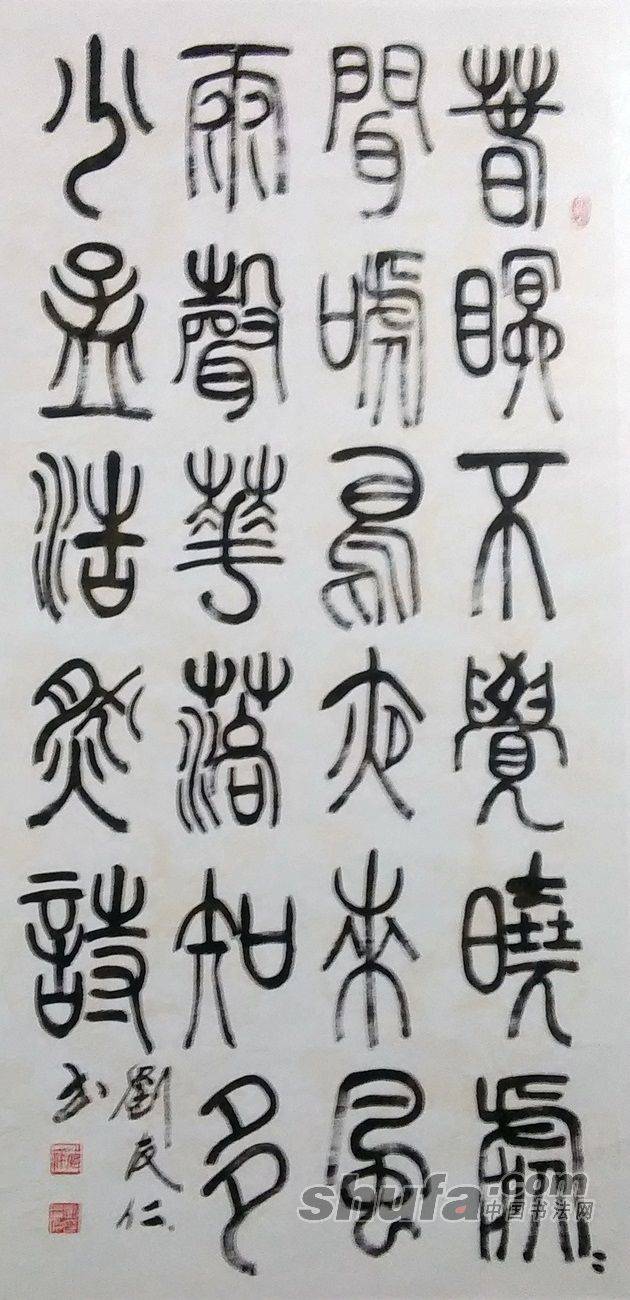 春瞑不覺曉處〻
聞嗁鳥夜來風
雨聲華落知多
少孟浩然詩
劉友仁
书
shufa.com
中国书法网